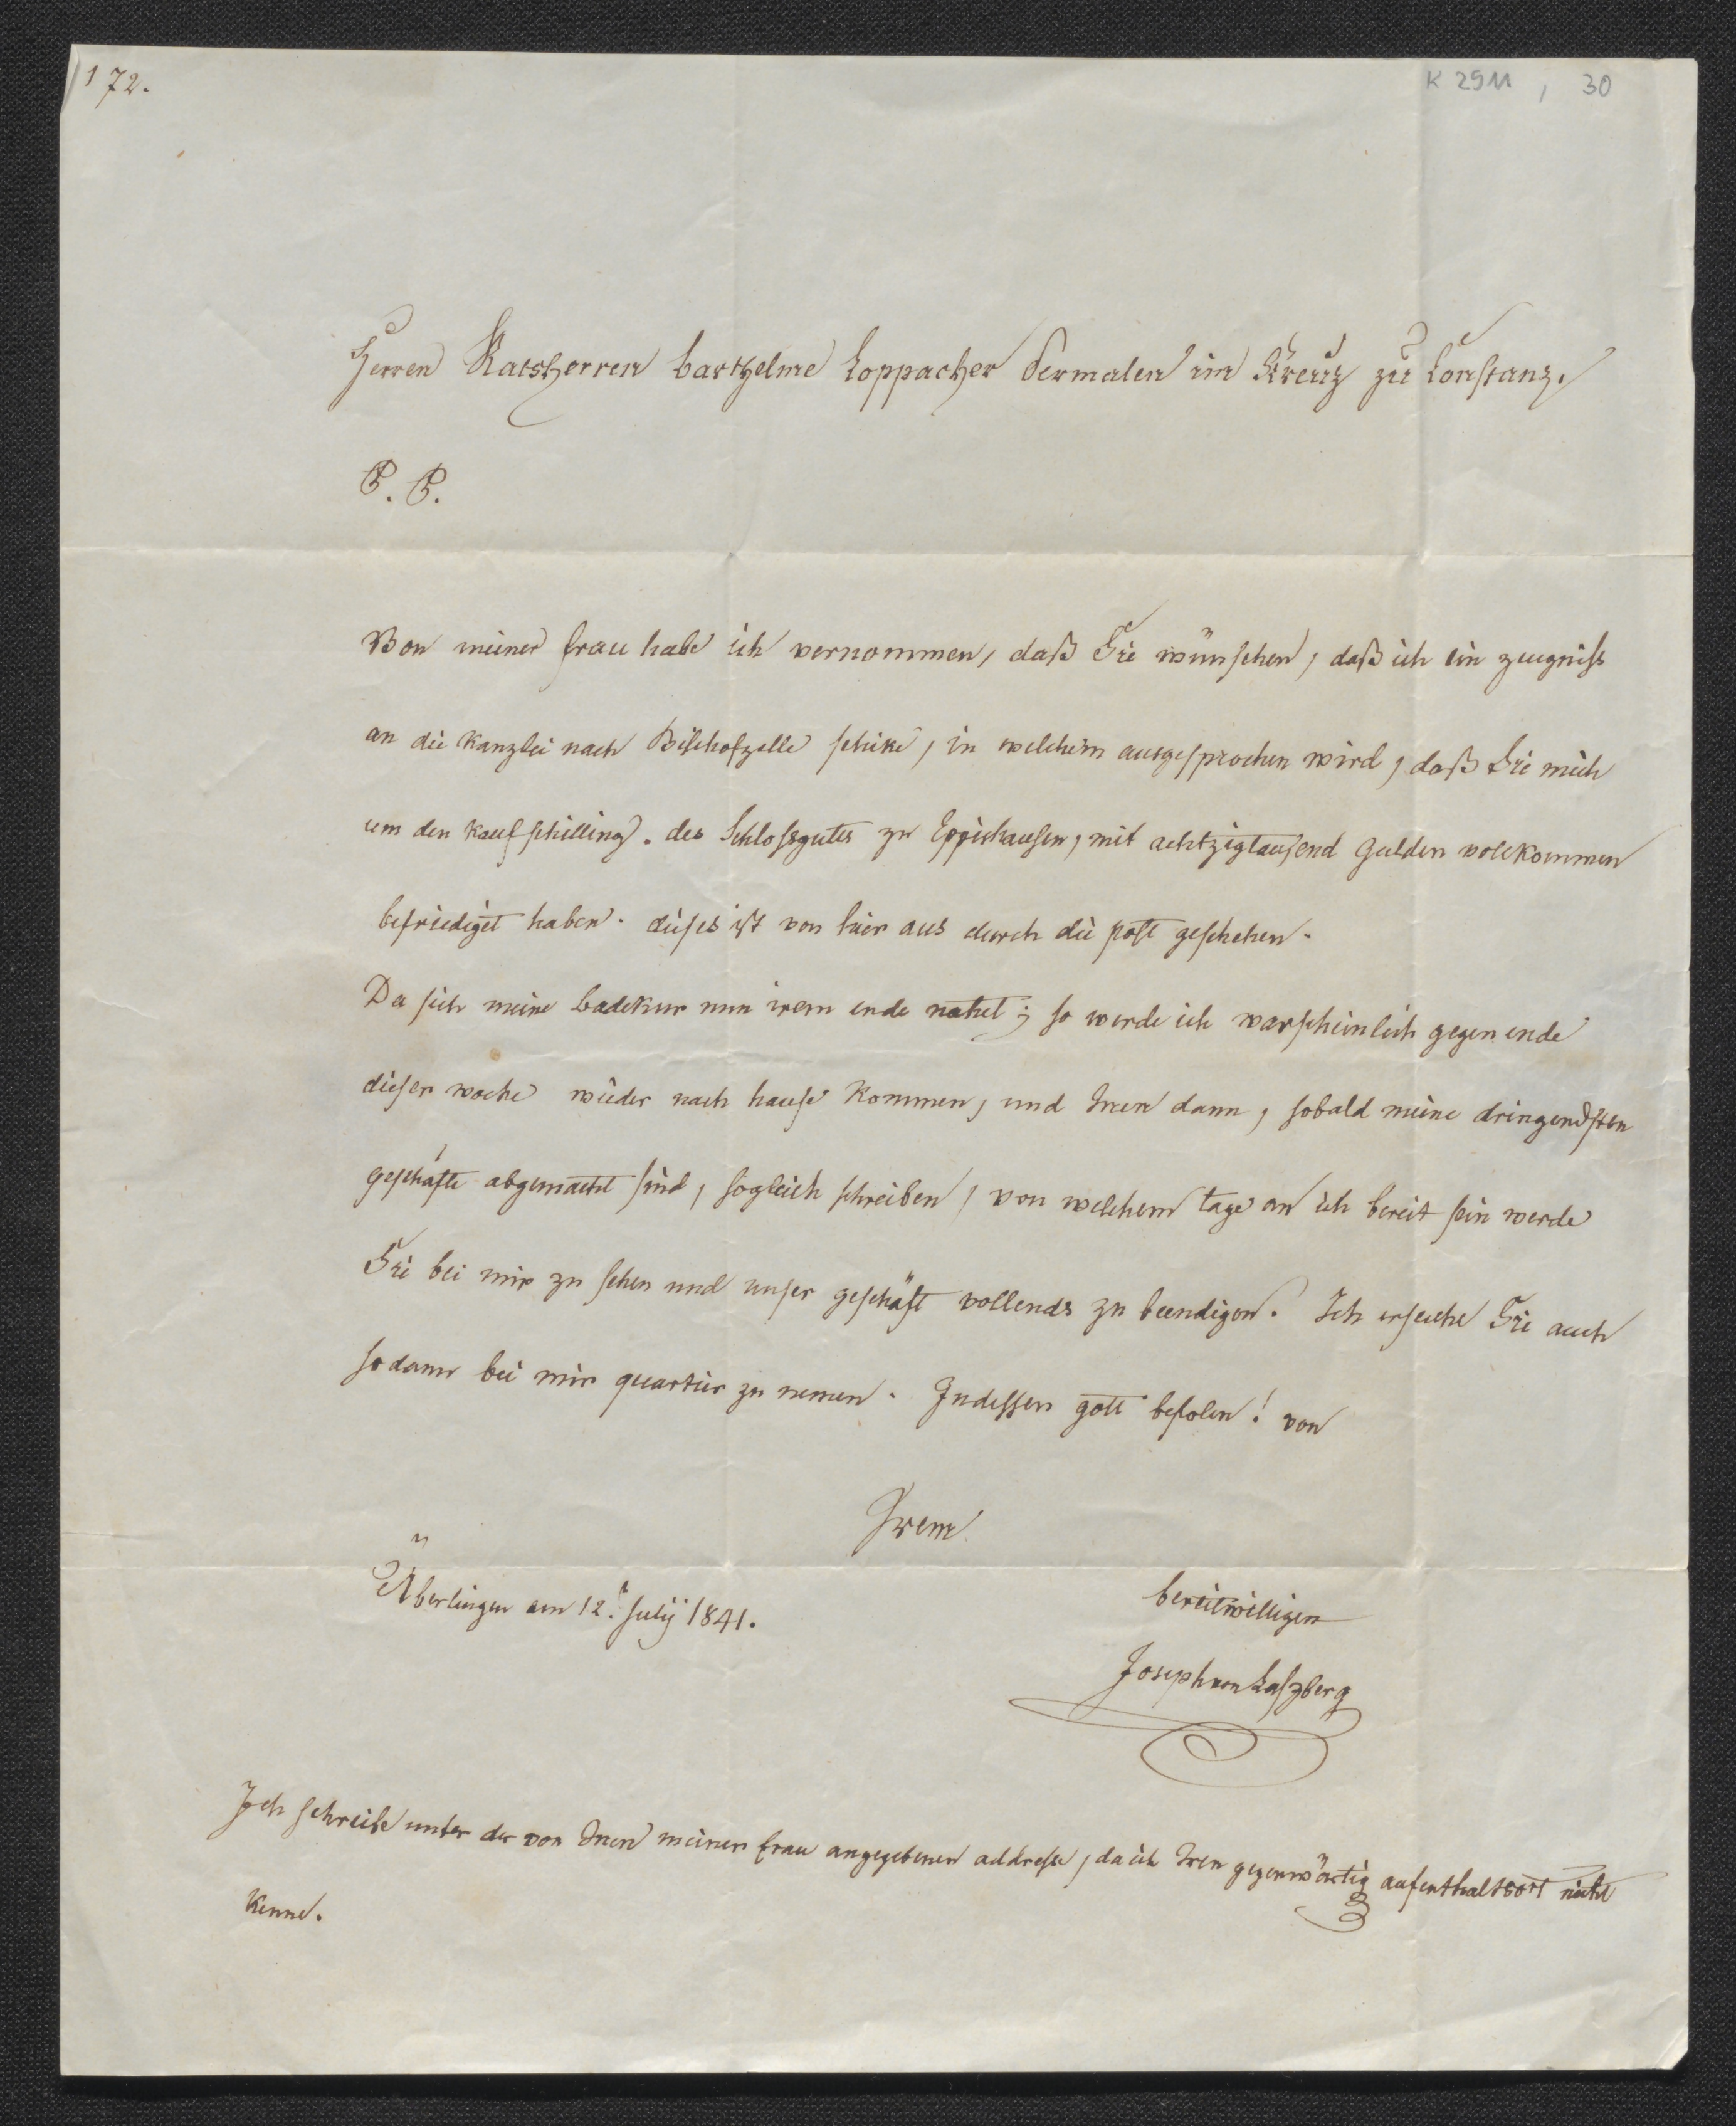 172.
K 2911, 30
Herren Ratsherren barthelme Loppacher dermalen im Kreuz zu Constanz.
P. P.
Von meiner frau habe ich vernommen, daß Sie wünschen, daß ich ein zeugniß
an die Kanzlei nach Bischofzelle schike, in welchem ausgesprochen wird, daß Sie mich
um den Kaufschilling. des Schlossgutes zu Eppishausen, mit achtzigtausend Gulden vollkommen
befriediget haben. dieses ist von hier aus durch die post geschehen.
Da sich meine badekur nun irem ende nahet; so werde ich warscheinlich gegen ende
dieser woche wieder nach hause kommen, und Inen dann, sobald meine dringendsten
geschäfte abgemacht sind, sogleich schreiben, von welchem tage an ich bereit sein werde
Sie bei mir zu sehen und unser geschäft vollends zu beendigen. Ich ersuche Sie auch
sodann bei mir quartier zu nemen. Indessen gott befolen! von
Irem
Überlingen am 12.t July 1841.
bereitwilligen
Joseph von Laszberg
Ich schreibe unter der von Inen meiner frau angegebenen addresse, da ich Iren gegenwärtig aufenthaltsort nicht
kenne.